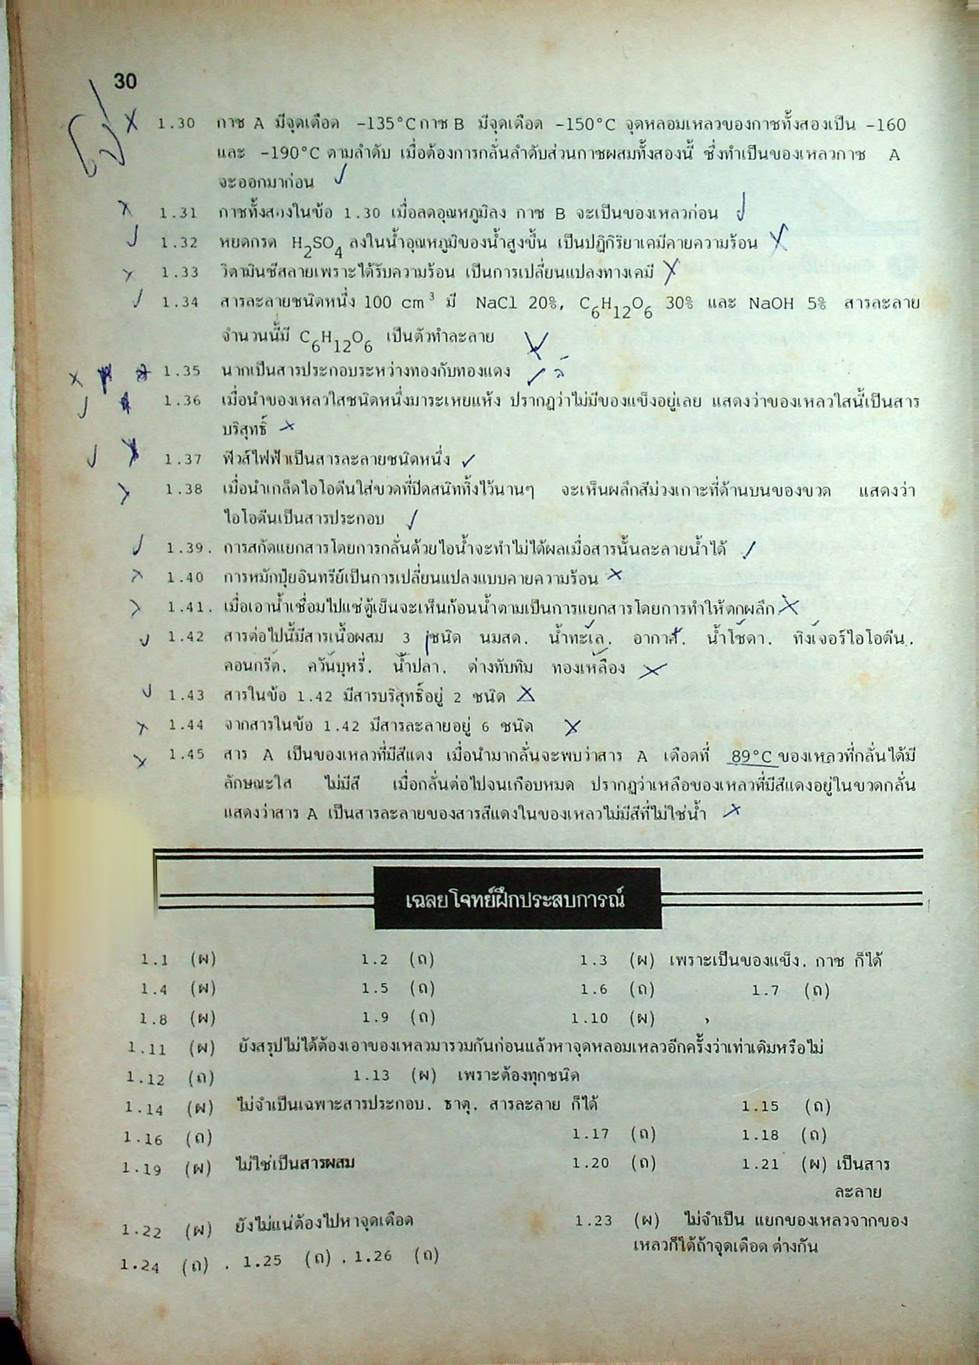 30
1.30 กาซ A มีจุดเดือด -135°C กาซ B มีจุดเดือด -150°C จุดหลอมเหลวของกาซทั้งสองเป็น -160
และ -190°C ตามลำดับ เมื่อต้องการกลั่นลำดับส่วนกาซผสมทั้งสองนี้ ซึ่งทำเป็นของเหลวกาซ A
จะออกมาก่อน
1.31 กาซทั้งสองในข้อ 1.30 เมื่อลดอุณหภูมิลง กาซ B จะเป็นของเหลวก่อน
1.32 หยดกรด H2SO4 ลงในน้ำอุณหภูมิของน้ำสูงขึ้น เป็นปฏิกิริยาเคมีคายความร้อน
1.33 วิตามินซีสลายเพราะได้รับความร้อน เป็นการเปลี่ยนแปลงทางเคมี
1.34 สารละลายชนิดหนึ่ง 100 cm3 มี NaCl 20%, C6H12O6 30% และ NaOH 5% สารละลาย
จำนวนนี้มี C6H12O6 เป็นตัวทำละลาย
1.35 นากเป็นสารประกอบระหว่างทองกับทองแดง
1.36 เมื่อนำของเหลวใสชนิดหนึ่งมาระเหยแห้ง ปรากฏว่าไม่มีของแข็งอยู่เลย แสดงว่าของเหลวใสนี้เป็นสาร
บริสุทธิ์
1.37 ฟิวส์ไฟฟ้าเป็นสารละลายชนิดหนึ่ง
1.38 เมื่อนำเกล็ดไอโอดีนใส่ขวดที่ปิดสนิททิ้งไว้นานๆ จะเห็นผลึกสีม่วงเกาะที่ด้านบนของขวด แสดงว่า
ไอโอดีนเป็นสารประกอบ
1.39. การสกัดแยกสารโดยการกลั่นด้วยไอน้ำจะทำไม่ได้ผลเมื่อสารนั้นละลายน้ำได้
1.40 การหมักปุ๋ยอินทรีย์เป็นการเปลี่ยนแปลงแบบคายความร้อน
1.41. เมื่อเอาน้ำเชื่อมไปแช่ตู้เย็นจะเห็นก้อนน้ำตาลเป็นการแยกสารโดยการทำให้ตกผลึก
1.42 สารต่อไปนี้มีสารเนื้อผสม 3 ชนิด นมสด, น้ำทะเล, อากาศ, น้ำโซดา, ทิงเจอร์ไอโอดีน,
คอนกรีต, ควันบุหรี่, น้ำปลา, ด่างทับทิม ทองเหลือง
1.43 สารในข้อ 1.42 มีสารบริสุทธิ์อยู่ 2 ชนิด
1.44 จากสารในข้อ 1.42 มีสารละลายอยู่ 6 ชนิด
1.45 สาร A เป็นของเหลวที่มีสีแดง เมื่อนำมากลั่นจะพบว่าสาร A เดือดที่ 89°C ของเหลวที่กลั่นได้มี
ลักษณะใส ไม่มีสี เมื่อกลั่นต่อไปจนเกือบหมด ปรากฏว่าเหลือของเหลวที่มีสีแดงอยู่ในขวดกลั่น
แสดงว่าสาร A เป็นสารละลายของสารสีแดงในของเหลวไม่มีสีที่ไม่ใช่น้ำ
เฉลยโจทย์ฝึกประสบการณ์
1.1 (ผ) 1.2 (ถ) 1.3 (ผ) เพราะเป็นของแข็ง, กาซ ก็ได้
1.4 (ผ) 1.5 (ถ) 1.6 (ถ) 1.7 (ถ)
1.8 (ผ) 1.9 (ถ) 1.10 (ผ)
1.11 (ผ) ยังสรุปไม่ได้ต้องเอาของเหลวมารวมกันก่อนแล้วหาจุดหลอมเหลวอีกครั้งว่าเท่าเดิมหรือไม่
1.12 (ถ) 1.13 (ผ) เพราะต้องทุกชนิด
1.14 (ผ) ไม่จำเป็นเฉพาะสารประกอบ, ธาตุ, สารละลาย ก็ได้ 1.15 (ถ)
1.16 (ถ) 1.17 (ถ) 1.18 (ถ)
1.19 (ผ) ไม่ใช่เป็นสารผสม 1.20 (ถ) 1.21 (ผ) เป็นสาร
ละลาย
1.22 (ผ) ยังไม่แน่ต้องไปหาจุดเดือด 1.23 (ผ) ไม่จำเป็น แยกของเหลวจากของ
เหลวก็ได้ถ้าจุดเดือดต่างกัน
1.24 (ถ) , 1.25 (ถ) , 1.26 (ถ)